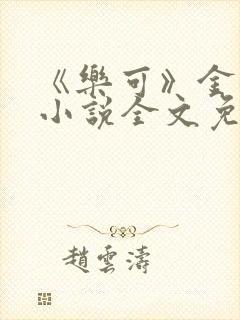 《樂可》全
小說全文免
趙雲濤